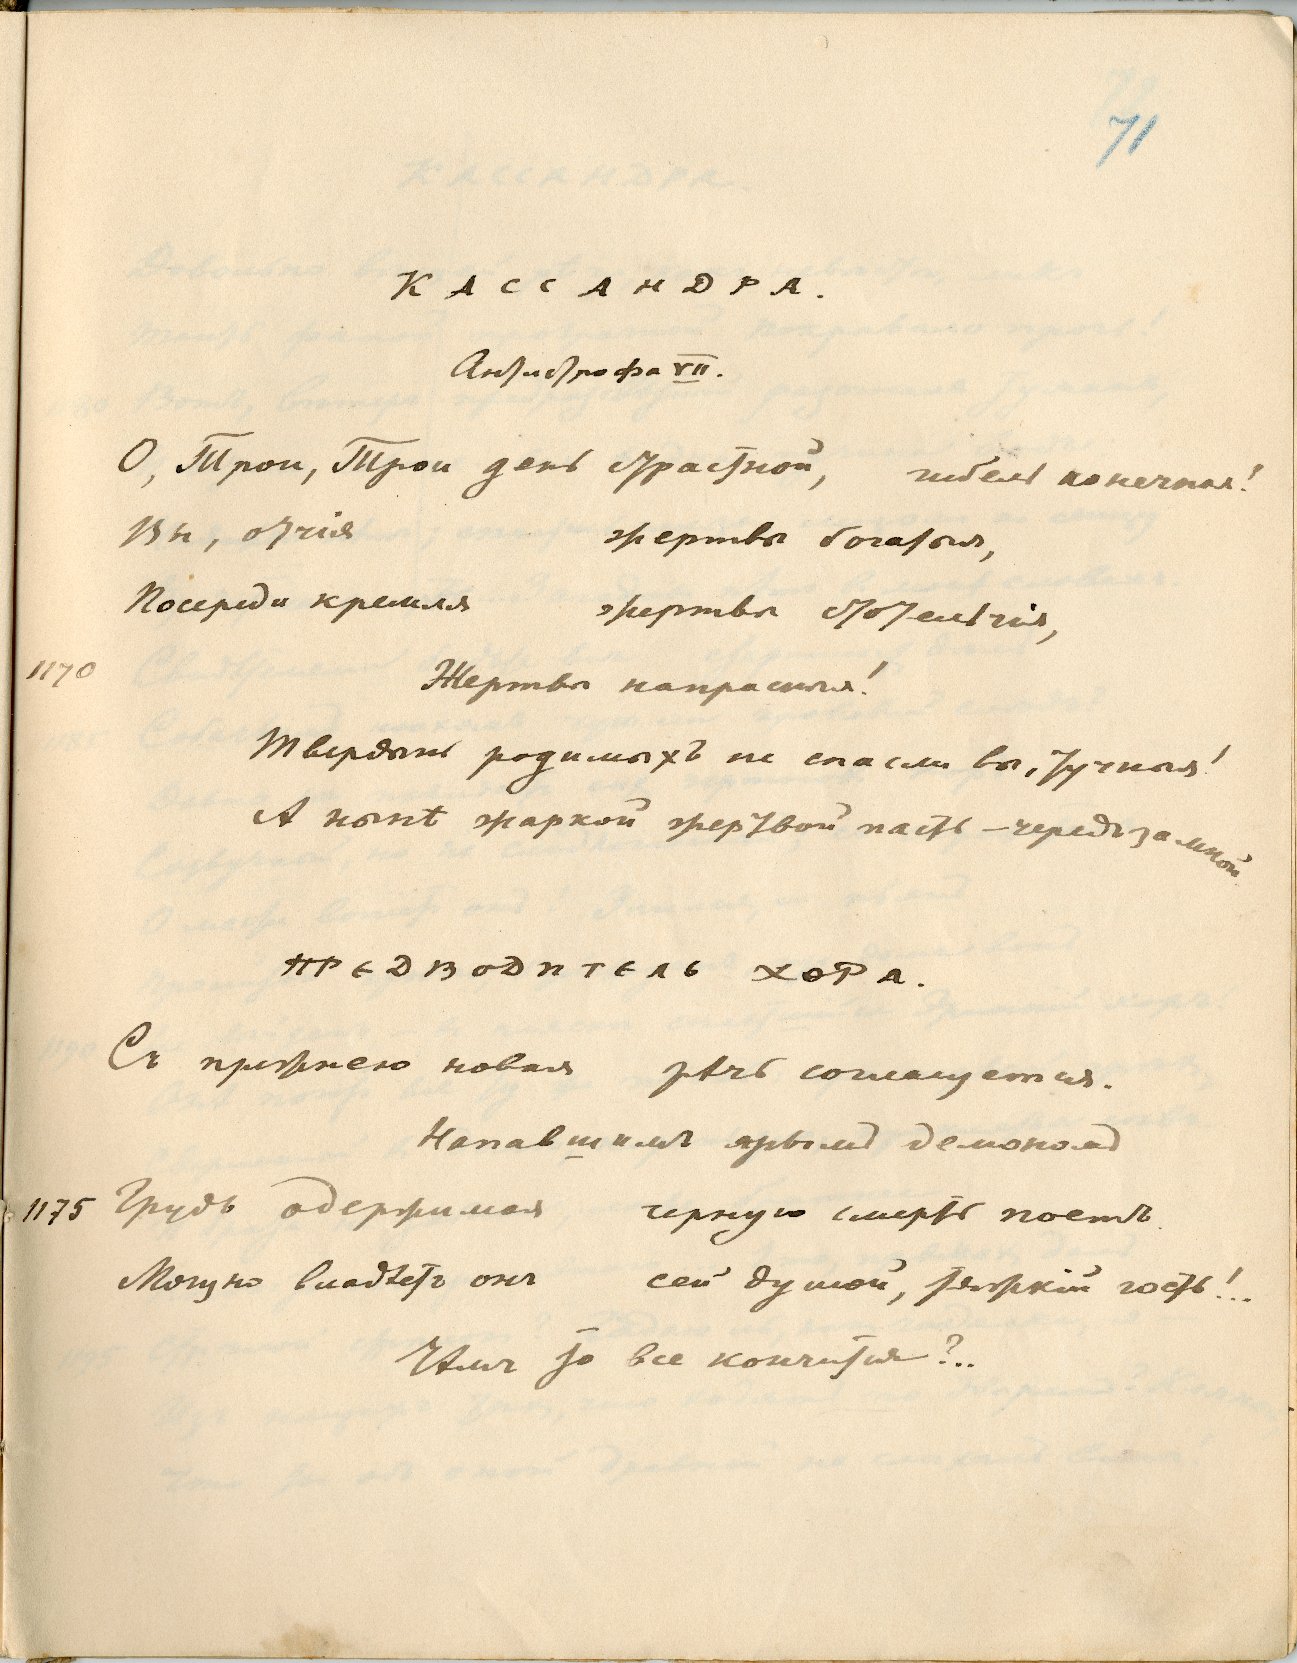 71
КАССАНДРА.
Антистрофа VII.
О, Трои, Трои день страстной, гибель конечная!
Вы, отчія жертвы богатыя,
Посереди кремля жертвы стотельчія,
1170 Жертвы напрасныя!
Твердынь родимыхъ не спасли вы, тучныя!
А нынѣ жаркой жертвой пасть – чередъ за мной
ПРЕДВОДИТЕЛЬ ХОРА.
Съ прежнею новая рѣчь согласуется.
Напавшимъ ярымъ демономъ
1175 Грудь одержимая черную смерть поетъ.
Мощно владѣетъ онъ сей душой, тяжкій гость!..
Чѣмъ то все кончится?..